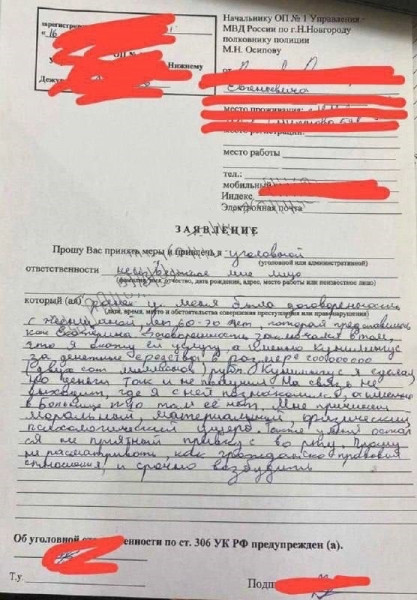 зарегистр
«16
ОП №
Нижнему
Дежу
Начальнику ОП № 1 Управления
МВД России по г.Н.Новгороду
полковнику полиции
М.Н. Осипову
от
Евгеньевича
место проживания:
место регистрации:
место работы
тел.:
мобильный
Индекс
Электронная почта
ЗАЯВЛЕНИЕ
Прошу Вас принять меры и привлечь к уголовной
(уголовной или административной)
ответственности неизвестное мне лицо
(фамилия, имя, отчество, дата рождения, адрес, место работы или неизвестное лицо)
который (ая) у меня была договоренность
(дата, время, место и обстоятельства совершения преступления или правонарушения)
с женщиной лет 60-70 лет, которая представилась
как Екатерина. Договоренность заключалась в том,
что я окажу ей услугу, а именно Кунилингус
за денежные средства в размере
(двухсот миллионов) рубл. Кунилингус я сделал
но деньги так и не получил. На связь не
выходит, где я с ней познакомился, а именно
в больнице №10 там её нет. Мне причинен
моральный, материальный, физический,
психологический ущерб. Также у меня остал
ся не приятный привкус во рту. Прошу
не рассматривать, как гражданско правовые
отношения и срочно возбудить
Об уголовной ответственности по ст. 306 УК РФ предупрежден (а).
Т.у.
Подп